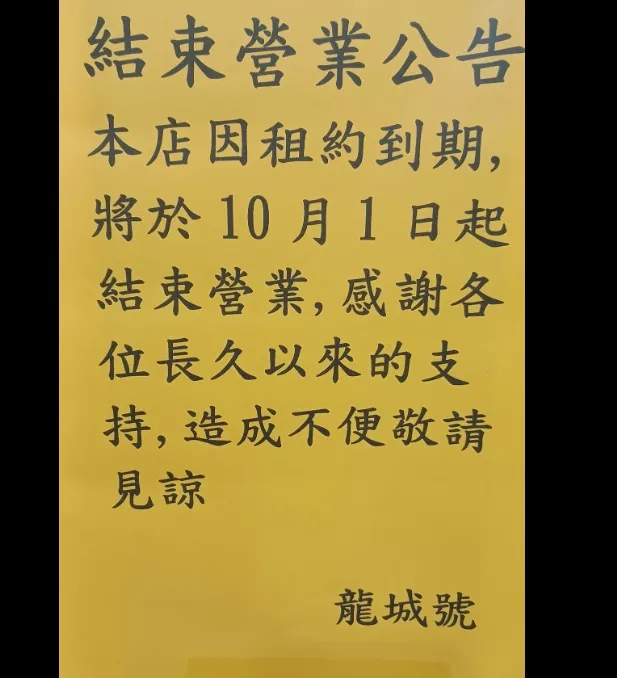 結束營業公告
本店因租約到期,
將於10月1日起
結束營業,感謝各
位長久以來的支
持,造成不便敬請
見諒
龍城號